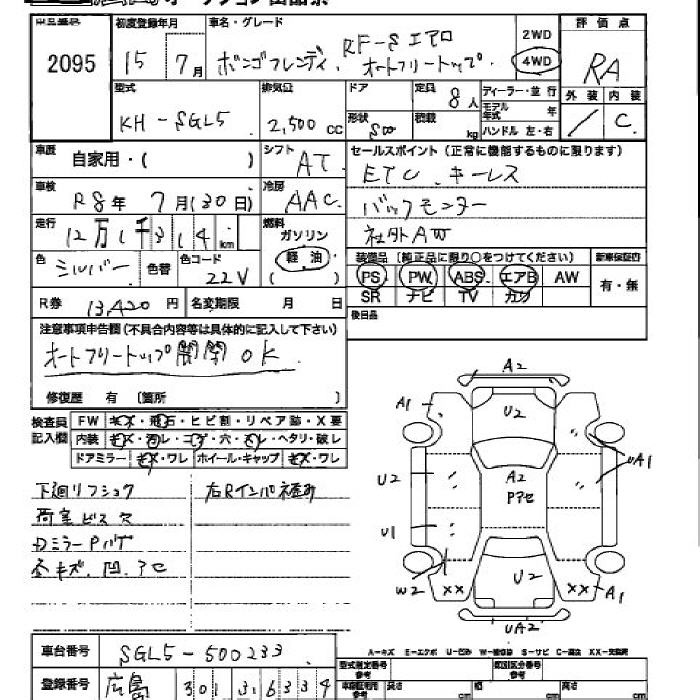 オークション出品票
出品番号 初度登録年月 車名・グレード 評価点
2095 15 7月 ボンゴフレンディ RF-Sエアロ オートフリートップ 2WD 4WD RA
型式 排気公 ドア 定員 8人 ディーラー・並行 外装 内装
モデル年式 年
KH-SGL5 2,500cc 形状 Sω 積載 kg ハンドル 左・右 / C
車歴 自家用・( ) シフト AT セールスポイント(正常に機能するものに限ります)
ETC キーレス
車検 R8年 7月(30日) 冷房 AAC バックモニター
走行 12万1千314km 燃料 ガソリン 社外AW
軽油
( )
色 シルバー 色替 色コード 22V 装備品(純正品に限り○をつけてください) 新車保証書
PS PW ABS エアB AW 有・無
SR ナビ TV カワ
R券 13,420円 名変期限 月 日 後日品
注意事項申告欄(不具合内容等は具体的に記入して下さい)
オートフリートップ開閉OK
修復歴 有 〔箇所 〕
検査員記入欄 FW キズ・飛石・ヒビ割・リペア跡・X要
内装 キズ・汚レ・コゲ・穴・スレ・ヘタリ・破レ
ドアミラー キズ・ワレ ホイール・キャップ キズ・ワレ
下廻リフショク 右Rインパネ褪み
荷室ビス穴
DミラーPハゲ
各キズ.凹.アセ
A2
A1 U2
UA1
U2 A2
Pアセ
U1
W2 XX U2 XX A1
UA2
A-キズ E-エクボ U-凹み W-補修跡 S-サビ C-腐食 XX-交換済
車台番号 SGL5-500233
登録番号 広島 301 3 6334
型式指定番号 参考 類別区分番号 参考
長さ cm 幅 cm 高さ cm